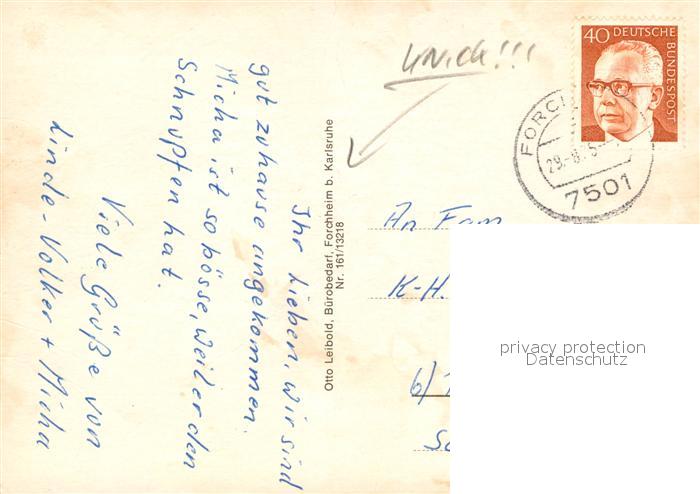 Ihr Lieben, wir sind
gut zuhause angekommen.
Micha ist so bösse, weil er den
Schnupfen hat.
Viele Grüße von
Linde-Volker + Micha
Otto Leibold, Bürobedarf, Forchheim b. Karlsruhe
Nr. 161/13218
40 DEUTSCHE
BUNDESPOST
FORCH
7501
An Fam.
K-H.
6/
privacy protection
Datenschutz